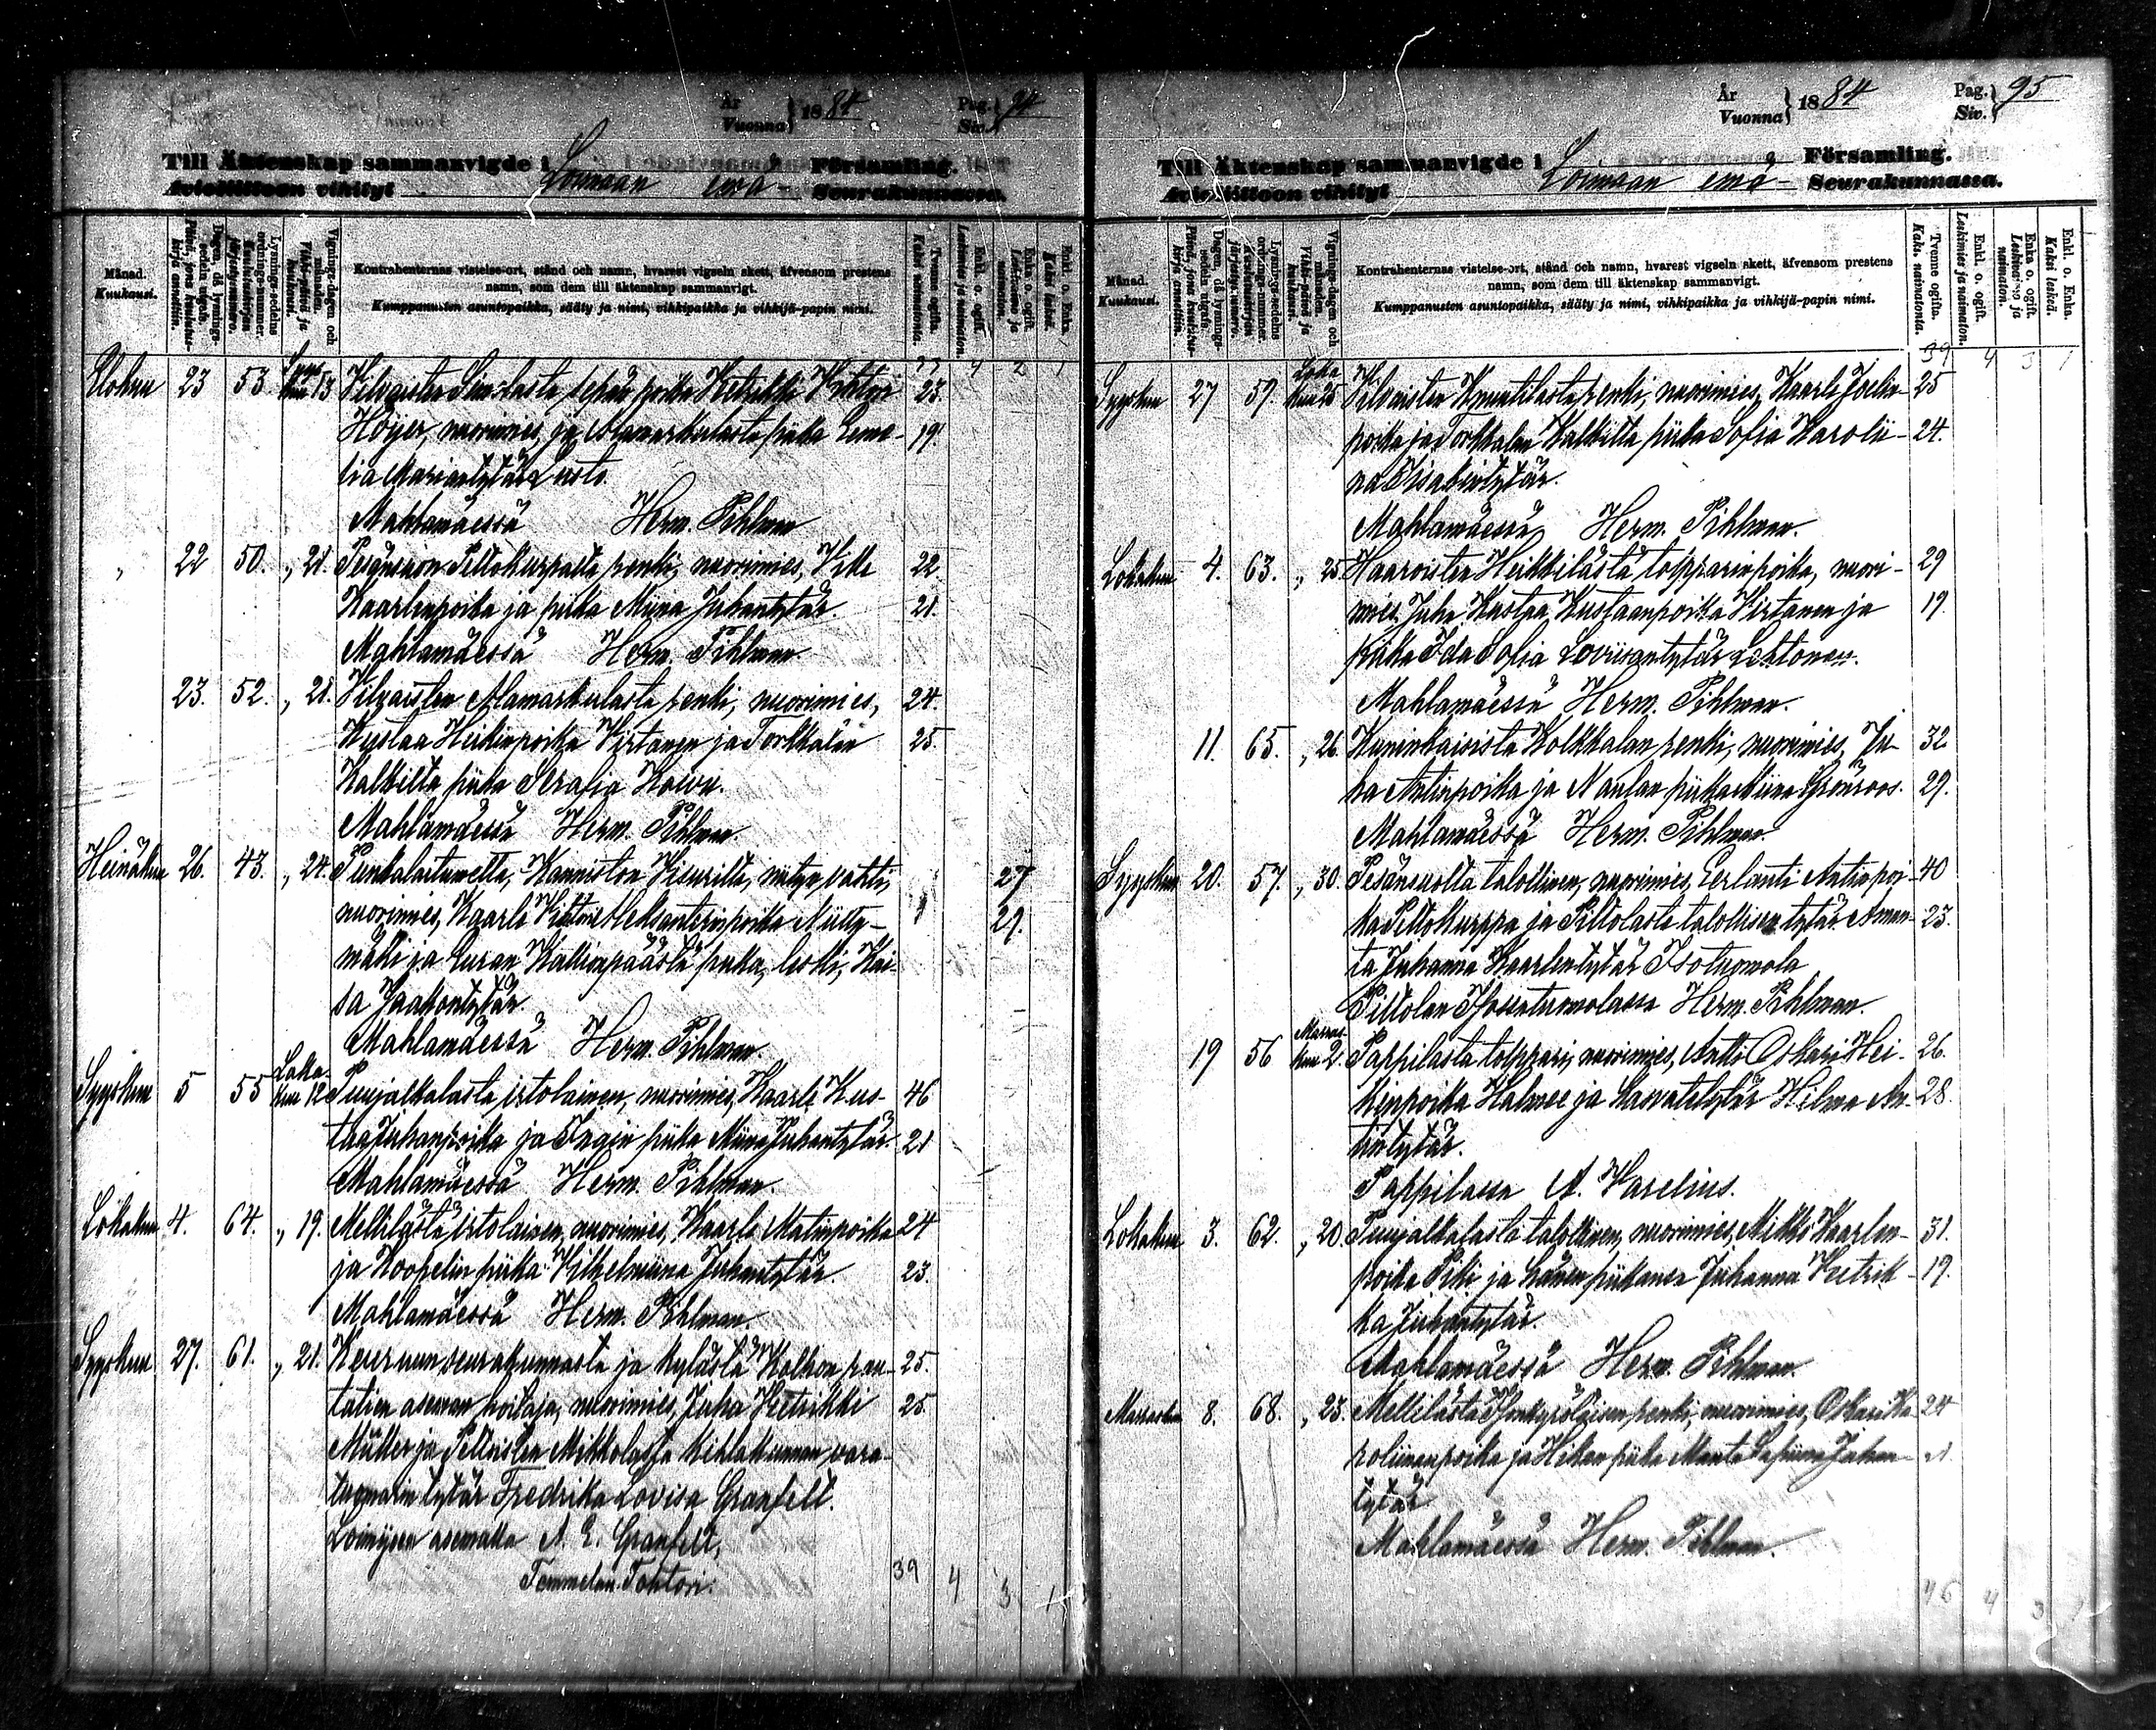 År
Vuonna } 1884
Pag.
Siv. } 94
Till Äktenskap sammanvigde i Församling.
Avioliittoon vihityt Loimaan emä- Seurakunnassa.
Månad.
Kuukausi.
Dagen, då lysnings-sedeln utgafs.
Päivä, jona kuulutus-kirja annettiin.
Lysnings-sedelns ordnings-nummer.
Vignings-dagen och månaden.
Vihki-päivä ja kuukausi.
Kontrahenternas vistelse-ort, stånd och namn, hvarest vigseln skett, äfvensom prestens
namn, som dem till äktenskap sammanvigt.
Kumppanusten asuntopaikka, sääty ja nimi, vihkipaikka ja vihkijä-papin nimi.
Tvenne ogifta.
Kaksi naimatonta.
Enkl. o. ogift.
Leskimies ja naimaton.
Enka o. ogift
Enkl. o. Enka.
Kaksi leskeä.
33 4 2 1
Elokuu 23 53. Syys kuu 13 sepän poika Ketrikki Vihtori 23.
Höijer, nuorimies, ja Alamarkulasta piika Eme- 19
lia Mariantytär
Mahlamäessä Herm. Pihlman
„ 22 50. „ 21. Pesänsuon Peltokurpasta renki, nuorimies, Ville 22.
Kaarlenpoika ja piika Miina Juhantytär. 21.
Mahlamäessä Herm. Pihlman.
23. 52. „ 21. Vilvaisten Alamarkulasta renki, nuorimies, 24.
Kustaa Heikinpoika Virtanen ja Torkkalan 25.
Kalkilta piika Serafia
Mahlamäessä Herm. Pihlman.
Heinäkuu 26. 43. „ 24. Punkalaitumelta, Kanniston 27
nuorimies, Kaarle Vihtori Aleksanterinpoika Niitty- 29.
mäki ja Euran Kallionpäästä piika, leski, Kai-
sa Jaakontytär.
Mahlamäessä Herm. Pihlman.
Syyskuu 5 55 Loka- kuu 12. Puujalkalasta irtolainen, nuorimies, Kaarle Kus- 46
taa Juhanpoika ja piika Miina Juhantytär. 21
Mahlamäessä Herm. Pihlman.
Lokakuu 4. 64. „ 19. Mellilästä irtolainen, nuorimies, Kaarle Matinpoika 24
ja piika Vilhelmiina Juhantytär. 23.
Mahlamäessä Herm. Pihlman.
Syyskuu 27. 61. „ 21. Keuruun seurakunnasta ja kylästä Kolhon rau- 25.
tatien aseman hoitaja, nuorimies, Juha Ketrikki 25.
Müller ja Peltoisten Mikkolasta Kihlakunnan vara-
tuomarin tytär Fredrika Lovisa Granfelt.
Loimijoen asemalla A. E. Granfelt,
Tohtori.
39 4 3 1
År
Vuonna } 1884
Pag.
Siv. } 95
Till Äktenskap sammanvigde i Församling.
Avioliittoon vihityt Loimaan emä- Seurakunnassa.
Månad.
Kuukausi.
Dagen, då lysnings-sedeln utgafs.
Päivä, jona kuulutus-kirja annettiin.
Lysnings-sedelns ordnings-nummer.
Vignings-dagen och månaden.
Vihki-päivä ja kuukausi.
Kontrahenternas vistelse-ort, stånd och namn, hvarest vigseln skett, äfvensom prestens
namn, som dem till äktenskap sammanvigt.
Kumppanusten asuntopaikka, sääty ja nimi, vihkipaikka ja vihkijä-papin nimi.
Tvenne ogifta.
Kaksi naimatonta.
Enkl. o. ogift.
Leskimies ja naimaton.
Enka o. ogift
Enkl. o. Enka.
Kaksi leskeä.
39 4 3 1
Syyskuu 27 59. Loka kuu 25 Vilvaisten renki, nuorimies, Kaarle Joelin- 25
poika ja Torkkalan Kalkilta piika Sofia Karolii- 24.
na Eisabentytär.
Mahlamäessä Herm. Pihlman.
Lokakuu 4. 63. „ 25 Haaroisten Heikkilästä torpparinpoika, nuori- 29
mies, Juha Kustaa Kustaanpoika Virtanen ja 19.
piika Ida Sofia Loviisantytär Lehtonen.
Mahlamäessä Herm. Pihlman.
11. 65. „ 26. Kuninkaisista Kolkkalan renki, nuorimies, Ju- 32
ha Antinpoika ja piika Miina Grönroos. 29.
Mahlamäessä Herm. Pihlman.
Syyskuu 20. 57. „ 30. Pesänsuolta talollinen, nuorimies, Erlanti Antinpoi- 40
ka Peltokurppa ja talollisen tytär Aman- 23.
ta Juhanna Kaarlentytär Isotuomola
Herm. Pihlman.
19 56 Marras- kuu 2. Pappilasta torppari, nuorimies, Antti Oskari Hei- 26.
kinpoika Halmee ja kasvatetytär Hilma An- 28.
tintytär.
Pappilassa A. Varelius.
Lokakuu 3. 62. „ 20. Puujalkalasta talollinen, nuorimies, Mikko Kaarlen- 31.
poika ja hänen piikansa Juhanna Ketrik- 19.
ka Juhantytär.
Mahlamäessä Herm. Pihlman.
Marraskuu 8. 68. „ 23. Mellilästä renki, nuorimies, Oskari Ka- 24
roliinanpoika ja piika Manta Juhan-
tytär
Mahlamäessä Herm. Pihlman.
46 4 3 1